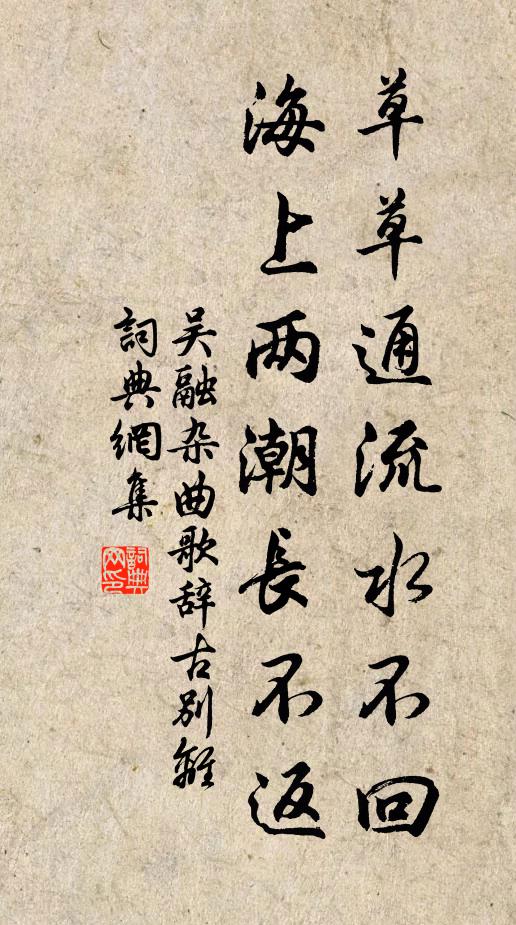 草草通流水不回
海上两潮長不返
吴融杂曲歌辞古别離
詞典網集
詞典网印